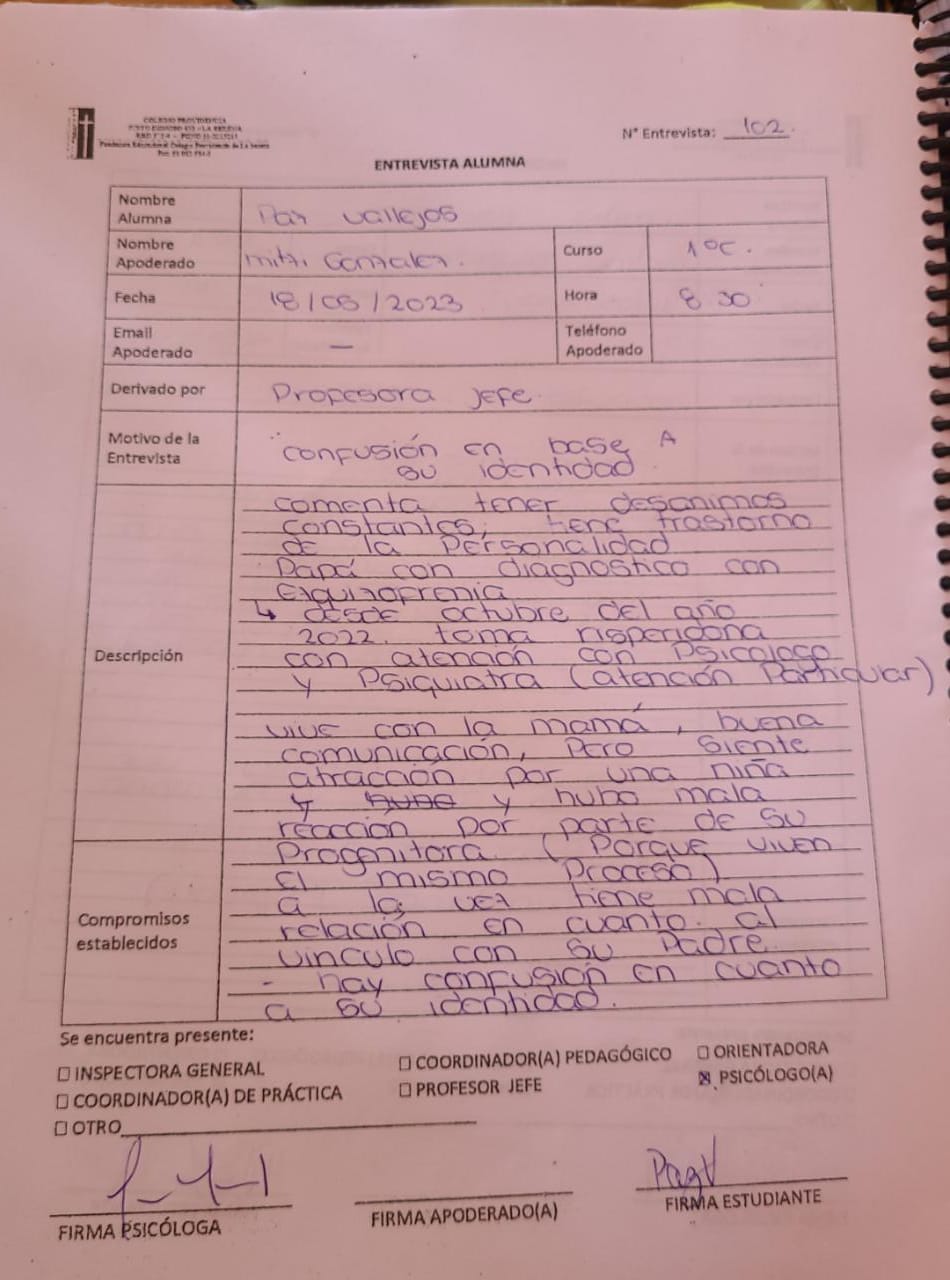 COLEGIO PROVIDENCIA
N° Entrevista: 102.
ENTREVISTA ALUMNA
Nombre Alumna Paz Vallejos
Nombre Apoderado Mitzi Gonzalez. Curso 1°C.
Fecha 18/05/2023 Hora 8 30
Email Apoderado — Teléfono Apoderado
Derivado por Profesora Jefe.
Motivo de la Entrevista confusión en base A
su identidad.
Descripción
comenta tener desanimos
constantes, tiene trastorno
de la Personalidad
Papá con diagnostico con
Esquizofrenia
↳ desde octubre del año
2022. toma risperidona
con atención con Psicologo
y Psiquiatra (atención Particular)
vive con la mamá, buena
comunicación, Pero siente
atracción por una niña
y hubo y hubo mala
reacción por parte de su
Compromisos establecidos
Progenitora. (Porque viven
el mismo Proceso)
a la vez tiene mala
relación en cuanto. al
vinculo con su Padre.
- hay confusión en cuanto
a su identidad.
Se encuentra presente:
☐ INSPECTORA GENERAL ☐ COORDINADOR(A) PEDAGÓGICO ☐ ORIENTADORA
☐ COORDINADOR(A) DE PRÁCTICA ☐ PROFESOR JEFE ☒ PSICÓLOGO(A)
☐ OTRO
Paz V
FIRMA PSICÓLOGA FIRMA APODERADO(A) FIRMA ESTUDIANTE